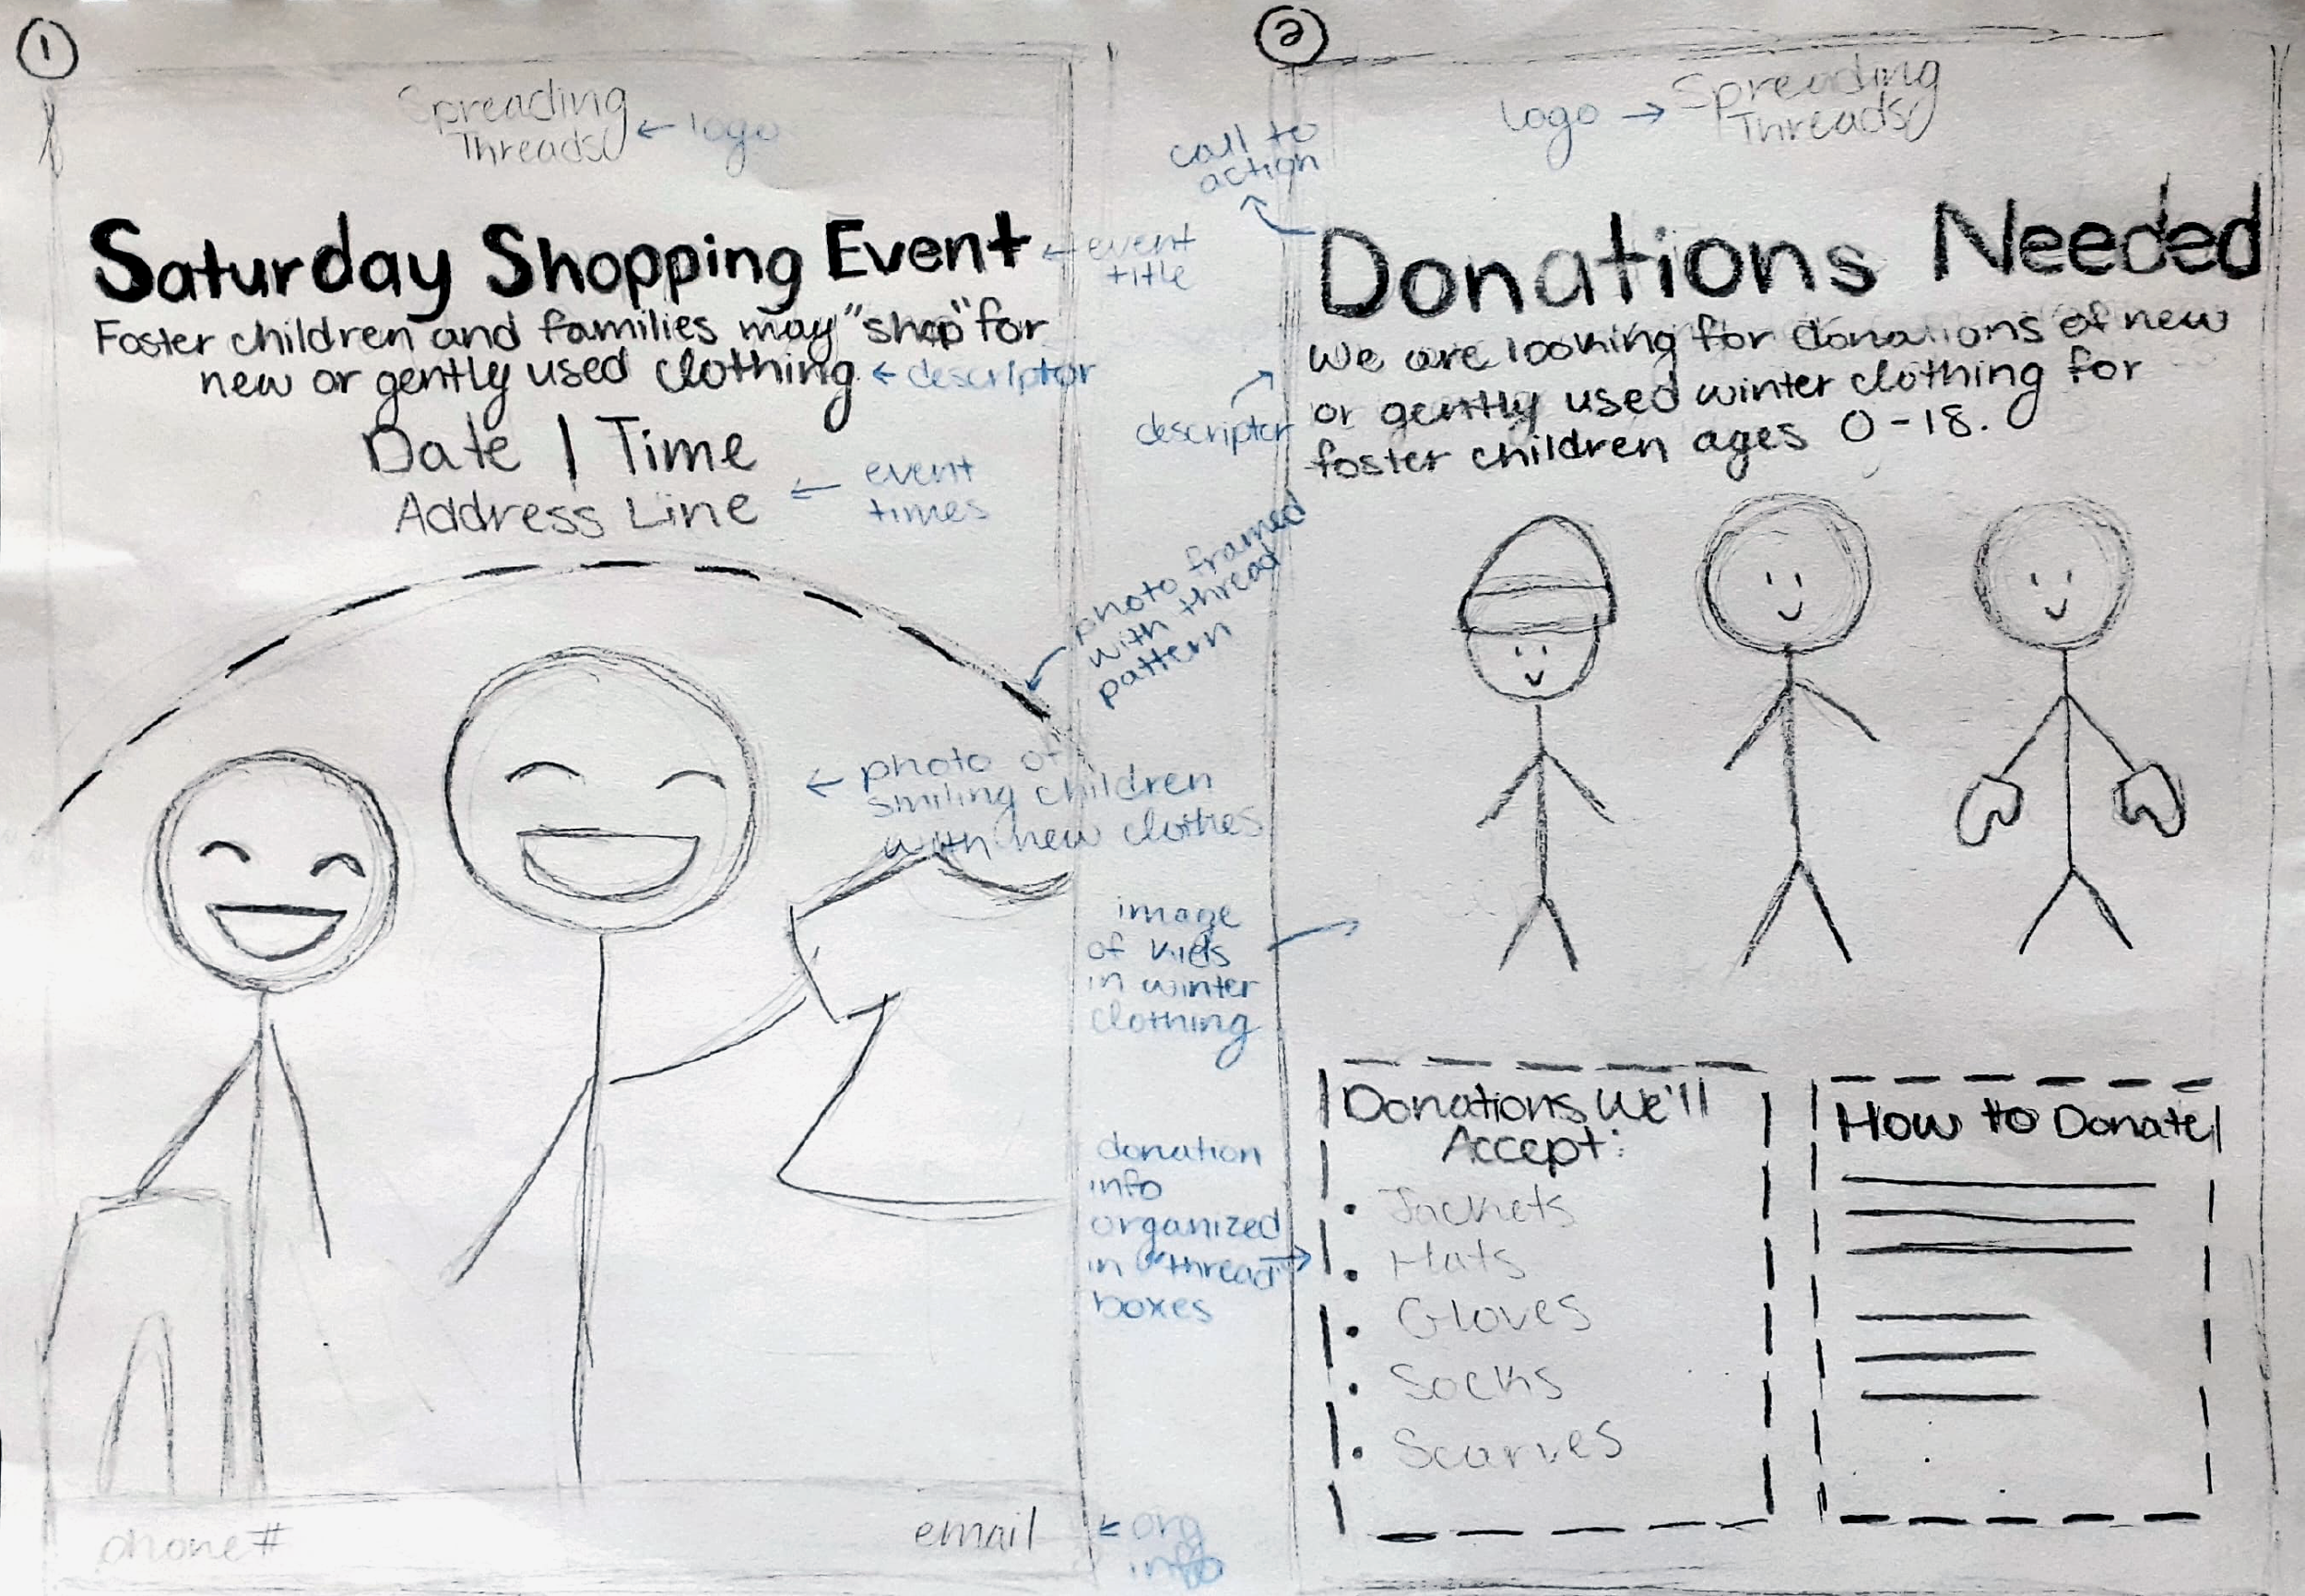 1
Spreading
Threads
← logo
Saturday Shopping Event
← event
title
Foster children and families may "shop" for
new or gently used clothing.
← descriptor
Date | Time
Address Line
← event
times
photo framed
with thread
pattern
← photo of
smiling children
with new clothes
phone #
email
← org
info
2
logo →
Spreading
Threads
call to
action
Donations Needed
We are looking for donations of new
or gently used winter clothing for
foster children ages 0-18.
descriptor
image
of kids
in winter
clothing
donation
info
organized
in "thread" →
boxes
Donations We'll
Accept:
• Jackets
• Hats
• Gloves
• Socks
• Scarves
How to Donate